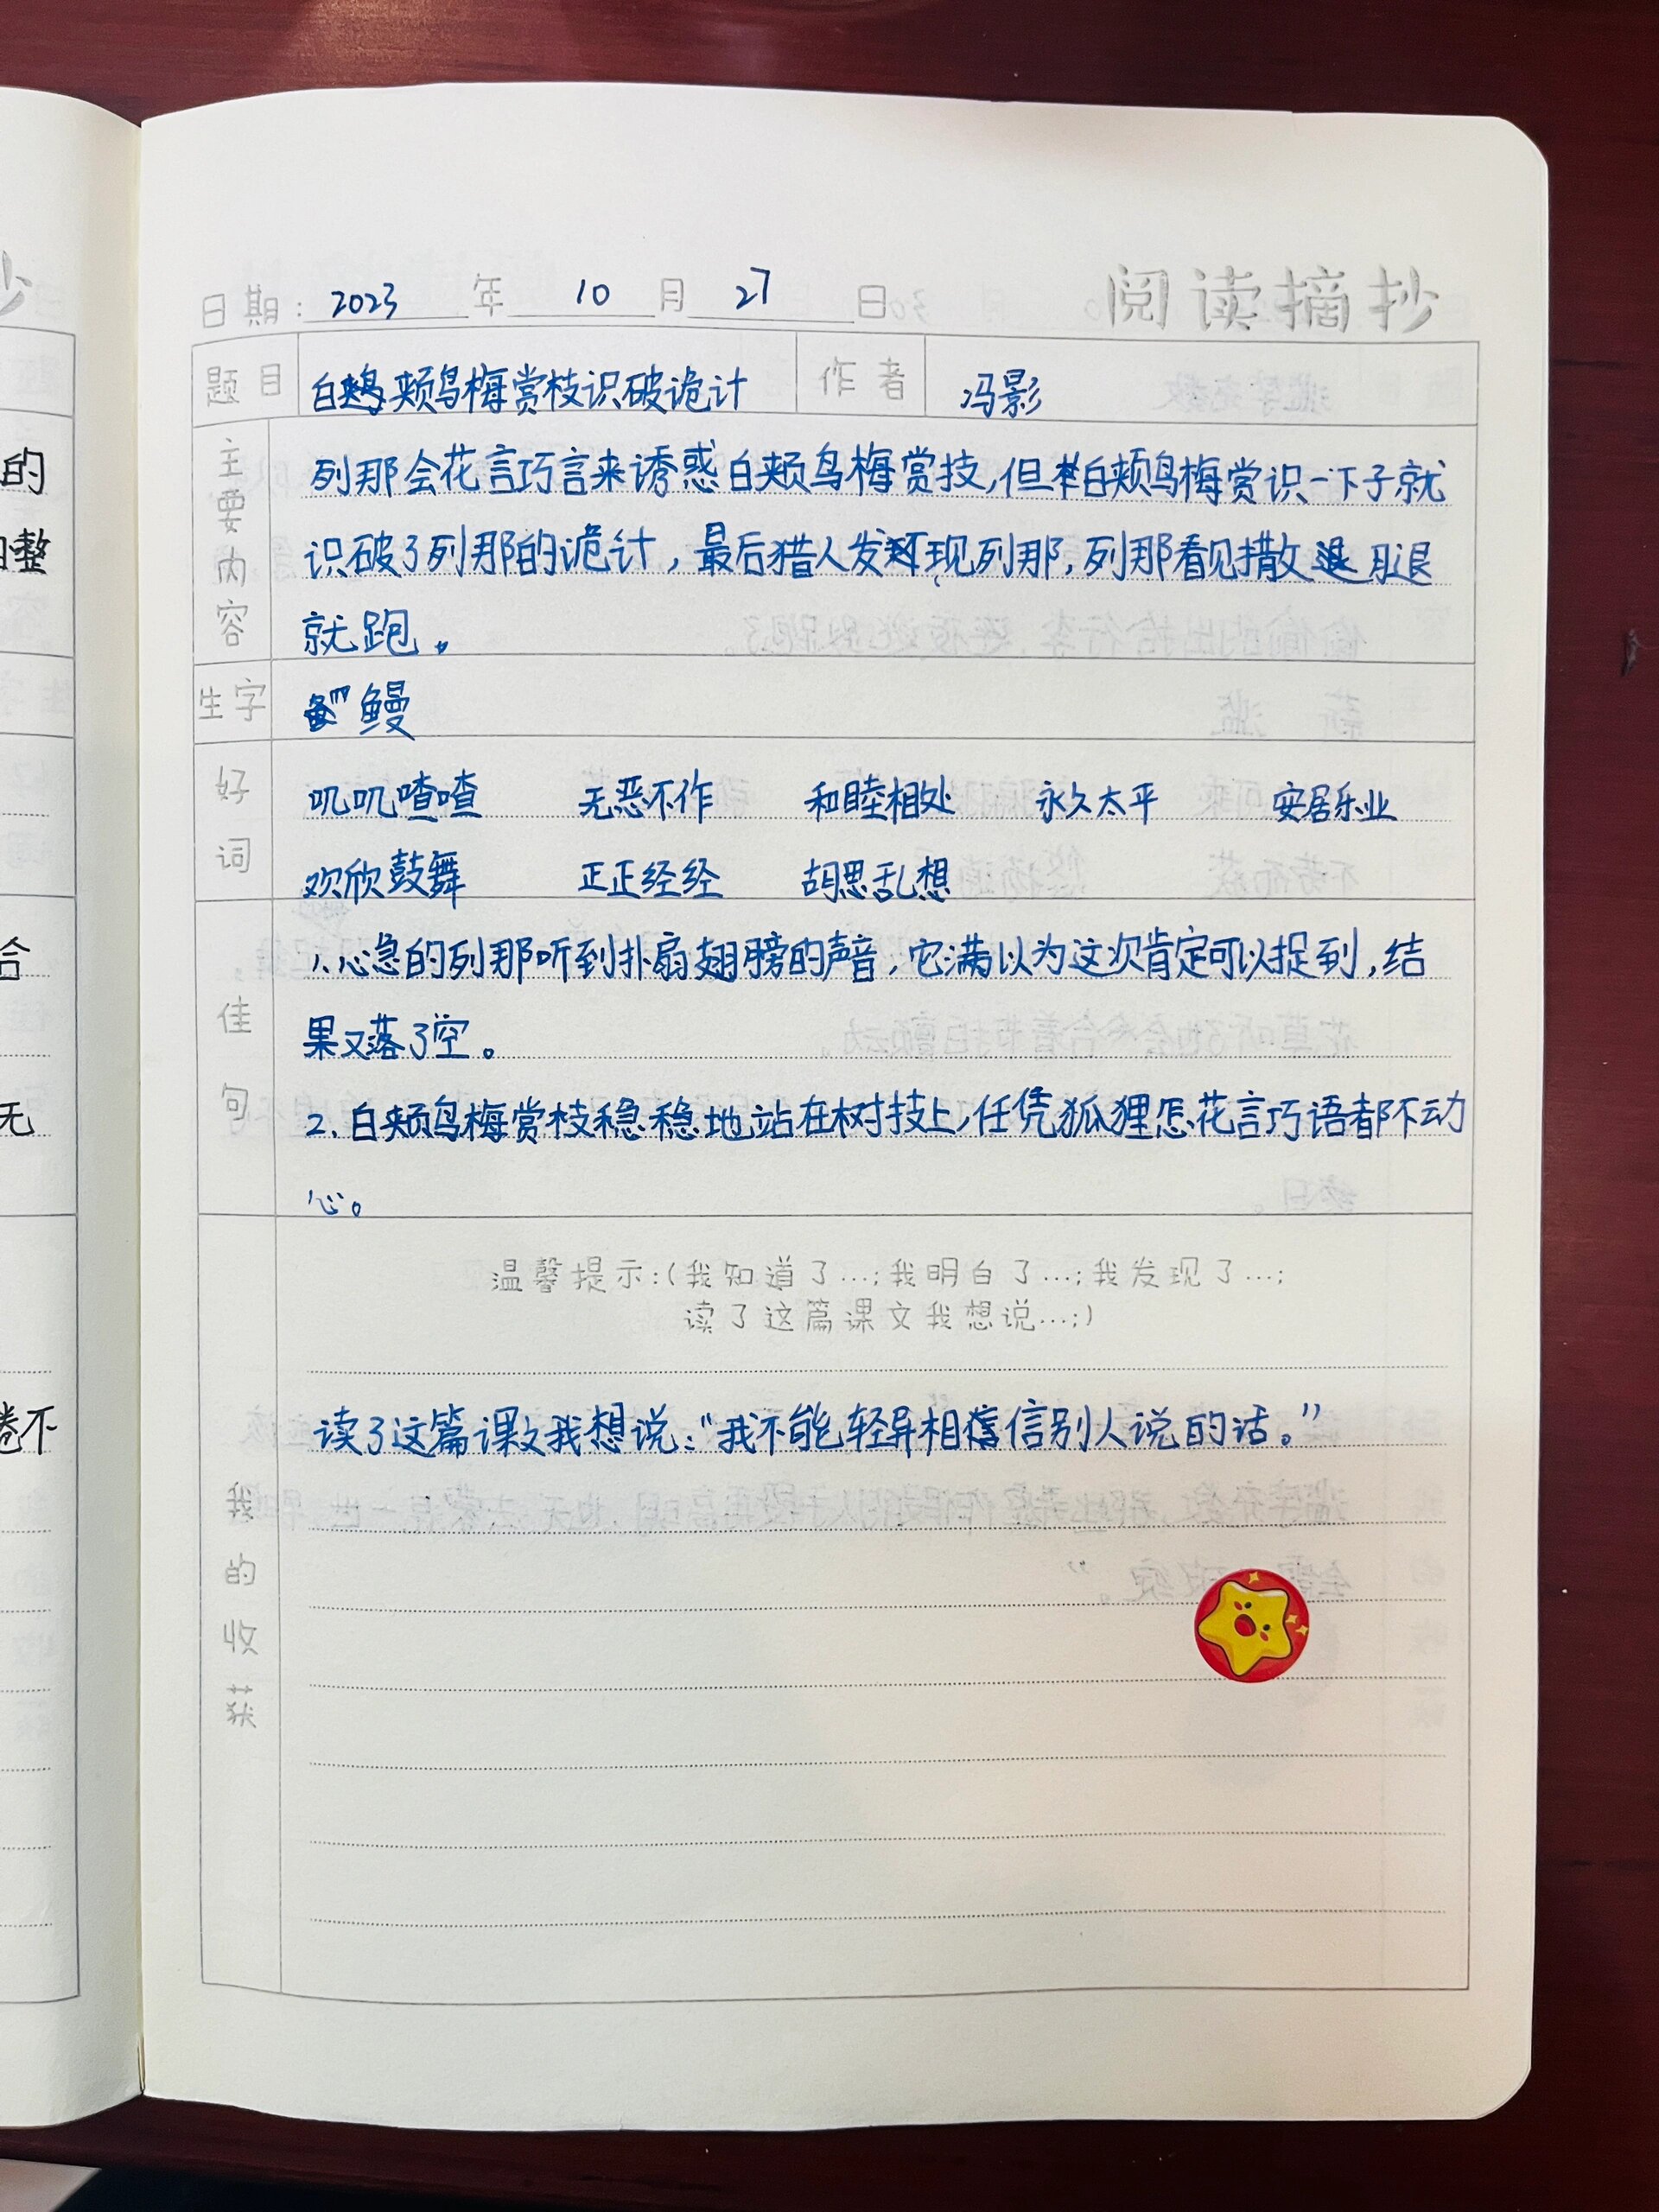 日期: 2023 年 10 月 27 日 阅读摘抄
题目 白颊鸟梅赏枝识破诡计 作者 冯影
主要内容
列那会花言巧言来诱惑白颊鸟梅赏技,但白颊鸟梅赏识一下子就
识破了列那的诡计,最后猎人发现列那,列那看见撒腿
就跑。
生字 鳗
好词
叽叽喳喳 无恶不作 和睦相处 永久太平 安居乐业
欢欣鼓舞 正正经经 胡思乱想
佳句
1.心急的列那听到扑扇翅膀的声音,它满以为这次肯定可以捉到,结
果又落了空。
2.白颊鸟梅赏枝稳稳地站在树技上,任凭狐狸怎花言巧语都不动
心。
温馨提示:(我知道了…;我明白了…;我发现了…;
读了这篇课文我想说…;)
我的收获
读了这篇课文我想说:“我不能轻异相信别人说的话。”
的
整
合
无
卷不